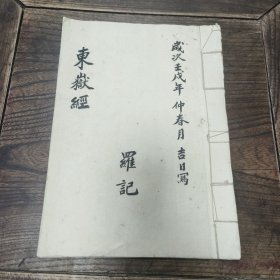 歲次壬戌年 仲春月 吉日寫
羅記
東嶽經